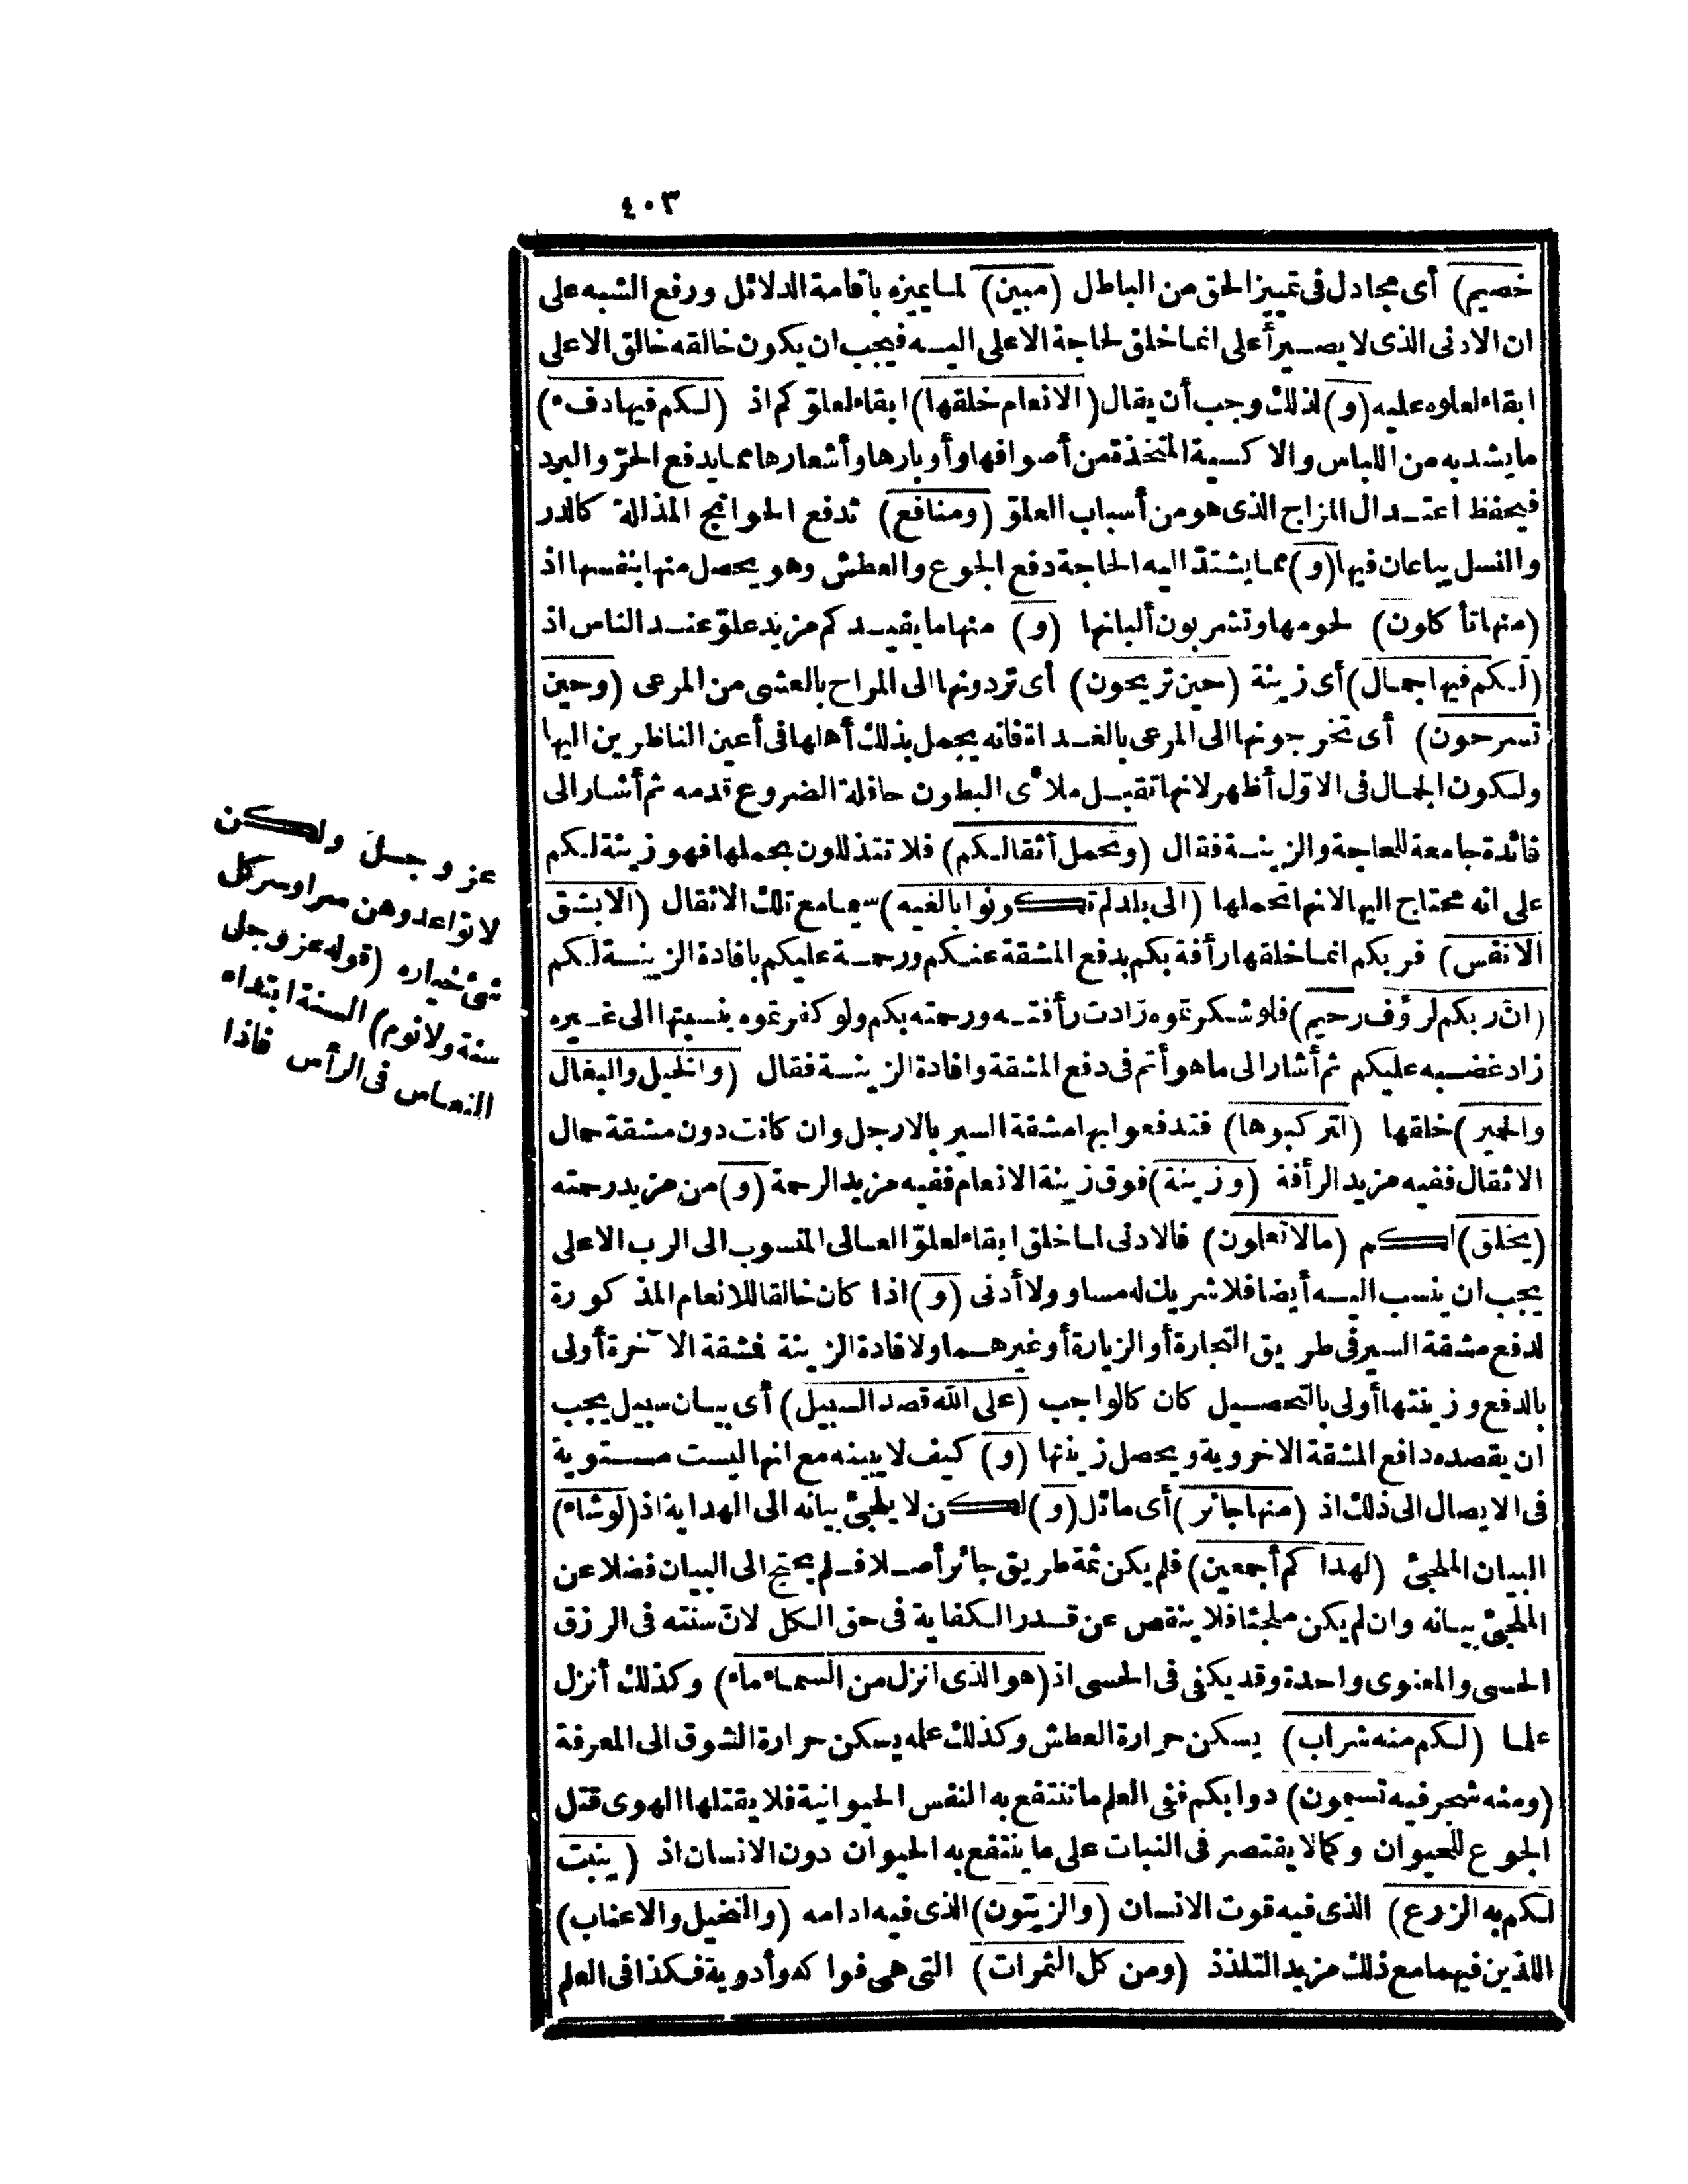 ٤٠٣
خصيم) أى مجادل فى تمييز الحق من الباطل (مبين) لما يميزه باقامة الدلائل ورفع الشبه على
ان الادنى الذى لا يصير أعلى انما خلق لحاجة الاعلى اليه فيجب ان يكون خالقه خالق الاعلى
ابقاء لعلوه عليه (و) لذلك وجب أن يقال (الانعام خلقها) ابقاء لعلوّكم اذ (لكم فيها دفء)
ما يشد به من اللباس والاكسية المتخذة من أصوافها وأوبارها وأشعارها مما يدفع الحرّ والبرد
فيحفظ اعتدال المزاج الذى هو من أسباب العلوّ (ومنافع) تدفع الحوائج المذللة كالدر
والنسل يباعان فيها (و) مما يشتدّ اليه الحاجة دفع الجوع والعطش وهو يحصل منها بنفسها اذ
(منها تأكلون) لحومها وتشربون ألبانها (و) منها ما يفيدكم مزيد علوّ عند الناس اذ
(لكم فيها جمال) أى زينة (حين تريحون) أى تردونها الى المراح بالعشى من المرعى (وحين
تسرحون) أى تخرجونها الى المرعى بالغداة فانه يجمل بذلك أهلها فى أعين الناظرين اليها
ولكون الجمال فى الاوّل أظهر لانها تقبل ملأى البطون حافلة الضروع قدمه ثم أشار الى
فائدة جامعة للحاجة والزينة فقال (وتحمل أثقالكم) فلا تتذللون بحملها فهو زينة لكم
على انه محتاج اليها لانها تحملها (الى بلد لم تكونوا بالغيه) سيما مع تلك الاثقال (الابشق
الانفس) فربكم انما خلقها رأفة بكم بدفع المشقة عنكم ورحمة عليكم بافادة الزينة لكم
(انّ ربكم لرؤف رحيم) فلو شكرتموه زادت رأفته ورحمته بكم ولو كفرتموه بنسبتها الى غيره
زاد غضبه عليكم ثم أشار الى ما هو أتم فى دفع المشقة وافادة الزينة فقال (والخيل والبغال
والحمير) خلقها (لتركبوها) فتدفعوا بها مشقة السير بالارجل وان كانت دون مشقة حمال
الاثقال ففيه مزيد الرأفة (وزينة) فوق زينة الانعام ففيه مزيد الرحمة (و) من مزيد رحمته
(يخلق) لكم (مالا تعلمون) فالادنى لما خلق ابقاء لعلوّ العالى المنسوب الى الرب الاعلى
يجب ان ينسب اليه أيضا فلا شريك له مساو ولا أدنى (و) اذا كان خالقا للانعام المذكورة
لدفع مشقة السير فى طريق التجارة أو الزيارة أو غيرهما ولافادة الزينة فمشقة الآخرة أولى
بالدفع وزينتها أولى بالتحصيل كان كالواجب (على الله قصد السبيل) أى بيان سبيل يجب
ان يقصده دافع المشقة الاخروية ويحصل زينتها (و) كيف لا يبينه مع انها ليست مستوية
فى الايصال الى ذلك اذ (منها جائر) أى مائل (و) لكن لا يلجئ بيانه الى الهداية اذ (لو شاء)
البيان الملجئ (لهداكم أجمعين) فلم يكن ثمة طريق جائر أصلا فلم يحتج الى البيان فضلا عن
الملجئ بيانه وان لم يكن ملجئا فلا ينقص عن قدر الكفاية فى حق الكل لانّ سنته فى الرزق
الحسى والمعنوى واحدة وقد يكفى فى الحسى اذ (هو الذى انزل من السماء ماء) وكذلك أنزل
علما (لكم منه شراب) يسكن حرارة العطش وكذلك علمه يسكن حرارة الشوق الى المعرفة
(ومنه شجر فيه تسيمون) دوابكم ففى العلم ما تنتفع به النفس الحيوانية فلا يقتلها الهوى قتل
الجوع للحيوان وكما لا يقتصر فى النبات على ما ينتفع به الحيوان دون الانسان اذ (ينبت
لكم به الزرع) الذى فيه قوت الانسان (والزيتون) الذى فيه ادامه (والنخيل والاعناب)
اللذين فيهما مع ذلك مزيد التلذذ (ومن كل الثمرات) التى هى فواكه وأدوية فكذا فى العلم
عز وجل ولكن
لا تواعدوهن سرا وسر كل
شئ خياره (قوله عز وجل
سنة ولا نوم) السنة ابتداء
النعاس فى الرأس فاذا